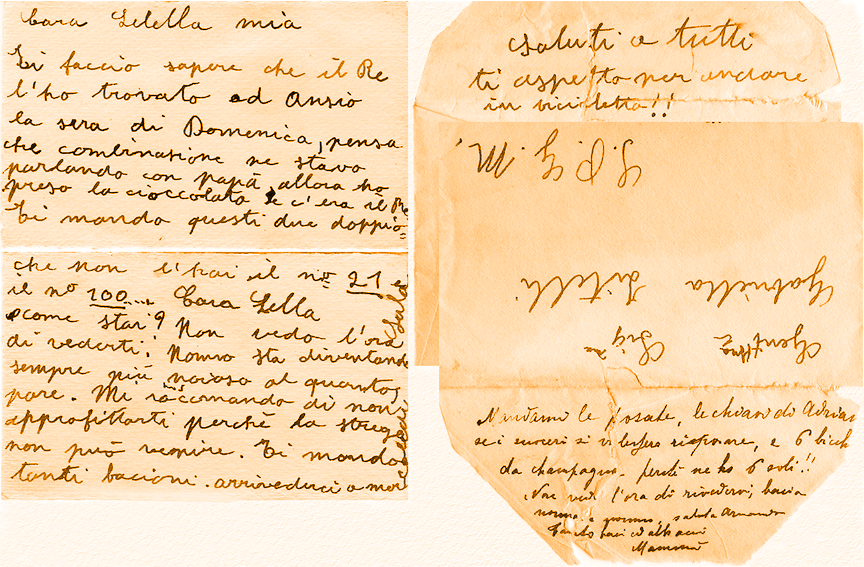 Cara Lelella mia
Ti faccio sapere che il Re
l'ho trovato ad Ansio
la sera di Domenica, pensa
che combinasione ne stavo
parlando con papà, allora ho
preso la cioccolata e c'era il Re
Ti mando questi due doppio=
che non l'hai il nº 21 e
il nº 100.... Cara Lella
come stai? Non vedo l'ora
di vederti! Nonno sta diventando
sempre più noioso al quanto
pare. Mi raccomando di non
approfittarti perchè la strega
non può venire. Ti mando
tanti bacioni. arrivederci a mor
Saluti a tutti
ti aspetto per andare
in bicicletta!!
S. P. G. M.
Gent.ma Sig.na
Gabriella Titelli
Mandami le posate, le chiavi di Adrian
se i suoceri si volessero riposare, e 6 bicch
da champagne. perchè ne ho 6 soli!!
Non vedo l'ora di rivedervi; bacia
nonna e nonno, saluta Armando
Tanto baci ed abbracci
Mammà